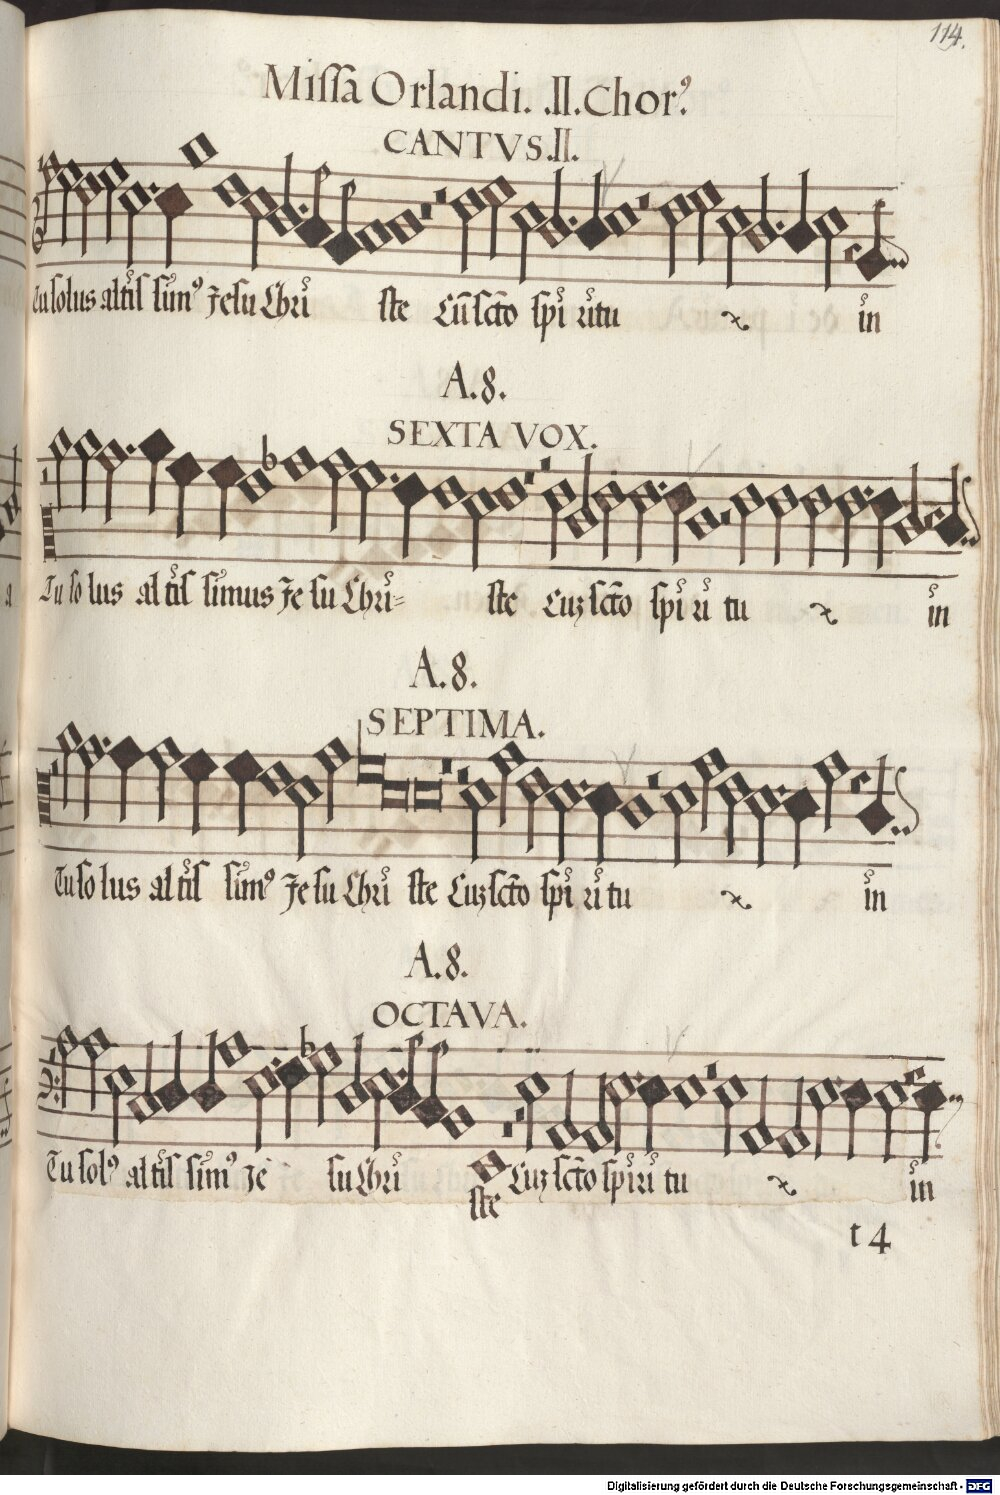 114.
Missa Orlandi. .II. Chor9
CANTVS.II.
Tu solus altis sim9 Jesu Chri ste Cũ scto spi ritu in
A.8.
SEXTA VOX.
Tu so lus al tis simus Je su Chri= ste Cuz scto spi ri tu in
A.8.
SEPTIMA.
Tu so lus al tis sim9 Je su Chri ste Cuz scto spi ri tu in
A.8.
OCTAVA.
Tu sol9 al tis sim9 Je su Chri ste Cuz scto spi ri tu in
t 4
Digitalisierung gefördert durch die Deutsche Forschungsgemeinschaft - DFG